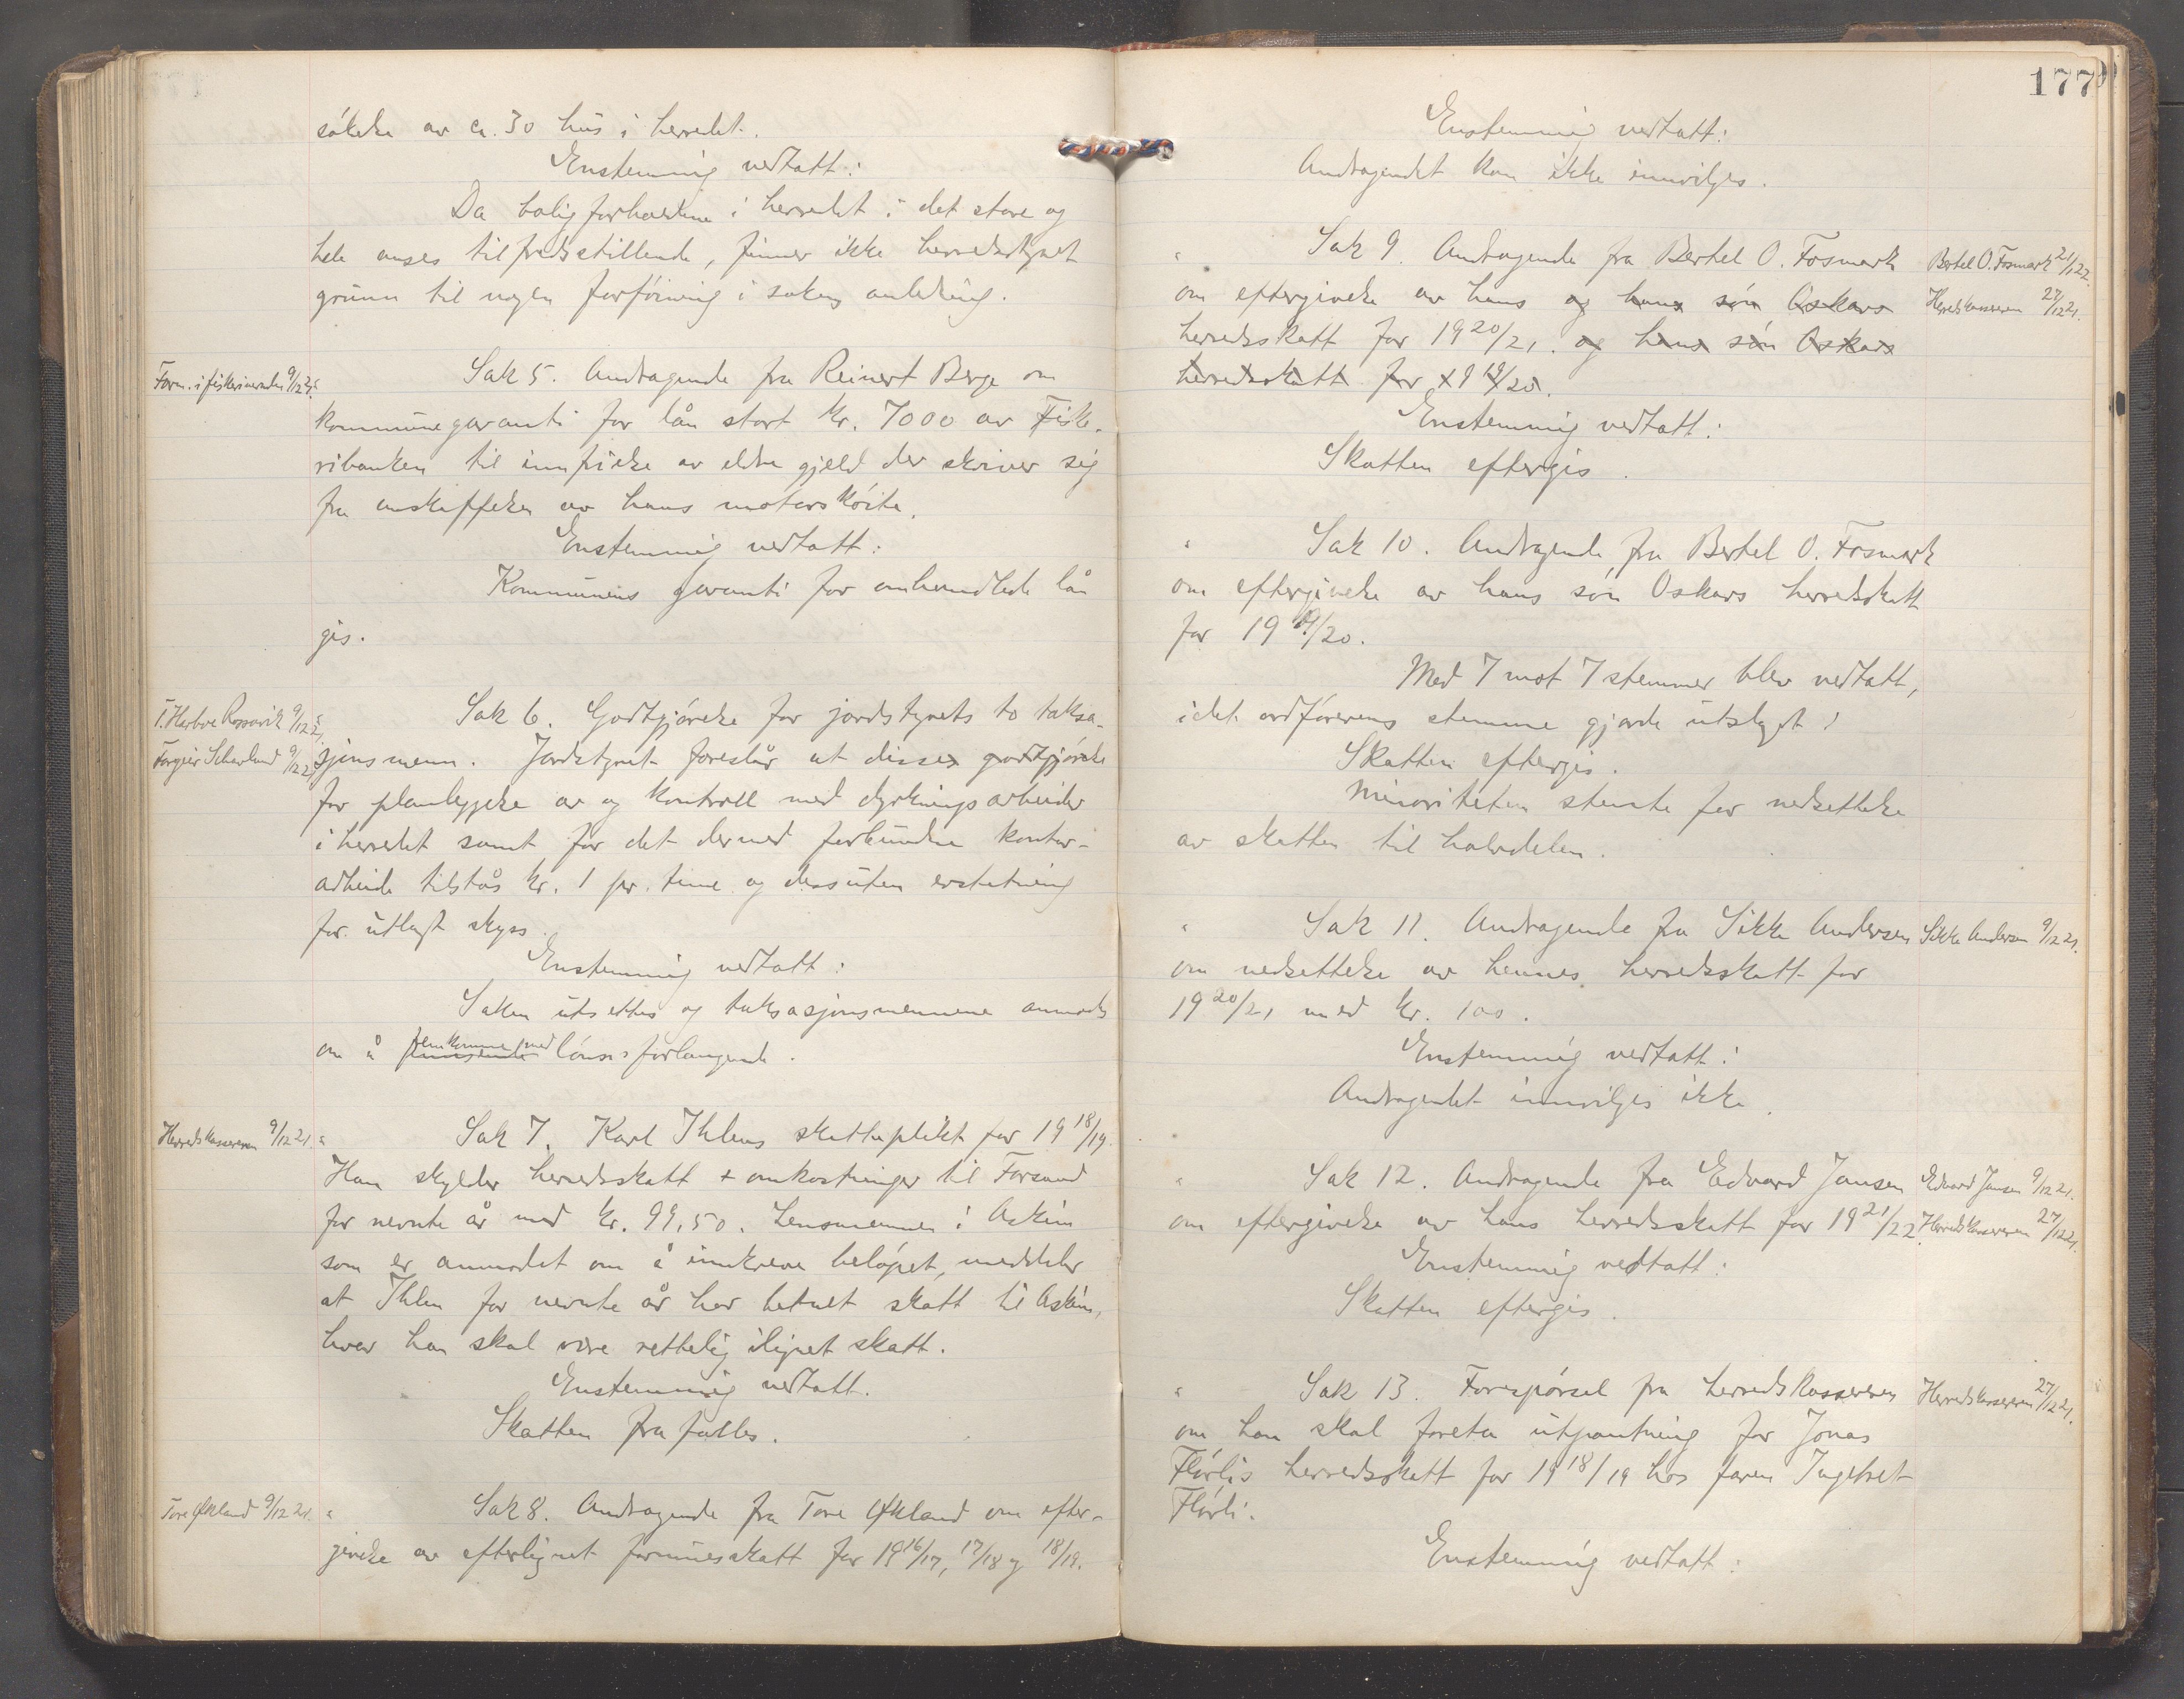 søkelse av ca. 30 hus i herredet.
Enstemmig vedtatt:
Da boligforholdene i herredet i det store og
hele anses tilfredsstillende, finner ikke herredsstyret
grunn til nogen forføining i sakens anledning.
Form. i fiskerinevnden 9/12 21.
Sak 5. Andragende fra Reinert Berge om
kommunegaranti for lån stort kr. 7000 av Fiske-
ribanken til innfrielse av eldre gjeld der skriver sig
fra anskaffelsen av hans motorskøite.
Enstemmig vedtatt:
Kommunens garanti for omhandlede lån
gis.
T. Herbve Rossavik 9/12 21.
Torgeir Helmland 9/12 21.
Sak 6. Godtgjørelse for jordstyrets to taksa-
sjonsmenn. Jordstyret foreslår at disse godtgjørelse
for planleggelse av og kontroll med dyrkningsarbeider
i herredet samt for det dermed forbundne kontor-
arbeide tilstås kr. 1 pr. time og dessuten erstatning
for utlagt skyss.
Enstemmig vedtatt:
Saken utsettes og taksasjonsmennene anmodes
om å fremkomme med lønnsforlangende.
Herredskassereren 9/12 21.
Sak 7. Karl Ihlens skatteplikt for 1918/19.
Han skylder herredsskatt + omkostninger til Forsand
for nevnte år med kr. 99,50. Lensmannen i Askim
som er anmodet om å innkreve beløpet, meddeler
at Ihlen for nevnte år har betalt skatt til Askim,
hvor han skal være rettelig ilignet skatt.
Enstemmig vedtatt.
Skatten frafalles.
Tore Økland 9/12 21.
Sak 8. Andragende fra Tore Økland om efter-
givelse av efterlignet formuesskatt for 1916/17, 17/18 og 18/19.
177
Enstemmig vedtatt:
Andragendet kan ikke innvilges.
Sak 9. Andragende fra Bertel O. Fosmark
Bertel O. Fosmark 21/1 22.
om eftergivelse av hans og hans søn Oskars
Herredskassereren 27/12 21.
herredsskatt for 1920/21. og hans søn Oskars
herredsskatt for 1919/20.
Enstemmig vedtatt:
Skatten eftergis.
Sak 10. Andragende fra Bertel O. Fosmark
om eftergivelse av hans søn Oskars herredsskatt
for 1919/20.
Med 7 mot 7 stemmer blev vedtatt,
idet ordførerens stemme gjorde utslaget:
Skatten eftergis.
Minoriteten stemte for nedsettelse
av skatten til halvdelen.
Sak 11. Andragende fra Sikke Andersen
Sikke Andersen 9/12 21.
om nedsettelse av hennes herredsskatt for
1920/21 med kr. 100.
Enstemmig vedtatt:
Andragendet innvilges ikke.
Sak 12. Andragende fra Edvard Jansen
Edvard Jansen 9/12 21.
om eftergivelse av hans herredsskatt for 1921/22.
Herredskassereren 27/12 21.
Enstemmig vedtatt:
Skatten eftergis.
Sak 13. Forespørsel fra herredskassereren
Herredskassereren 27/12 21.
om han skal foreta utpantning for Jonas
Flørlis herredsskatt for 1918/19 hos faren Ingebret
Flørli.
Enstemmig vedtatt: